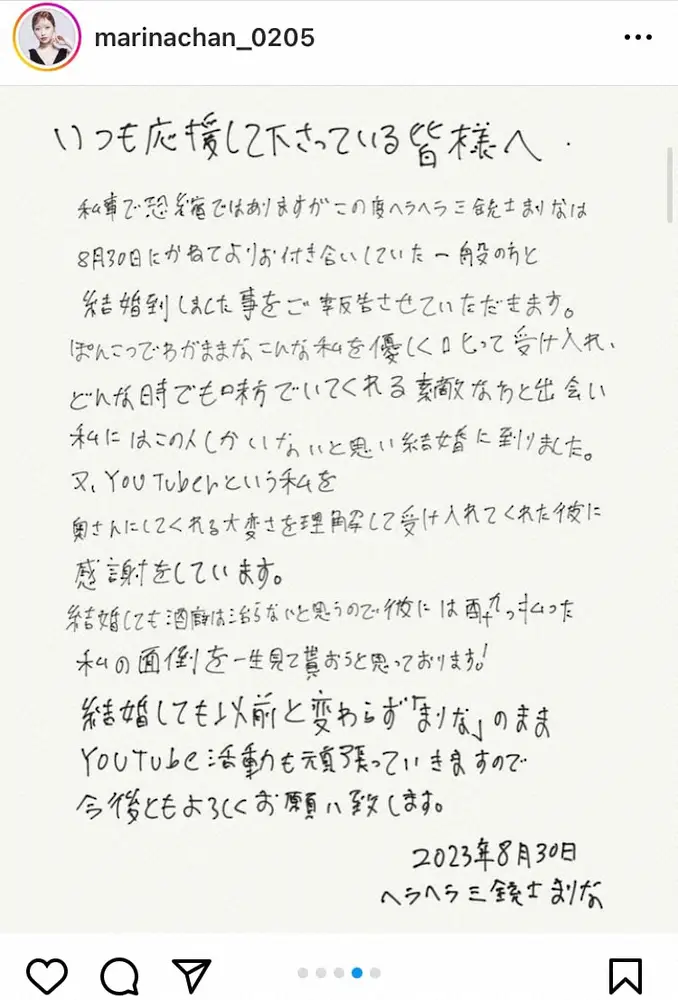 marinachan_0205
いつも応援して下さっている皆様へ.
私事で恐縮ではありますがこの度ヘラヘラ三銃士まりなは
8月30日にかねてよりお付き合いしていた一般の方と
結婚到しました事をご報告させていただきます。
ぽんこつでわがままなこんな私を優しく叱って受け入れ、
どんな時でも味方でいてくれる素敵な方と出会い
私にはこの人しかいないと思い結婚に到りました。
又、YouTuberという私を
奥さんにしてくれる大変さを理解して受け入れてくれた彼に
感謝をしています。
結婚しても酒癖は治らないと思うので彼には酔っ払った
私の面倒を一生見て貰おうと思っております!
結婚しても以前と変わらず「まりな」のまま
YouTube活動も頑張っていきますので
今後ともよろしくお願い致します。
2023年8月30日
ヘラヘラ三銃士まりな